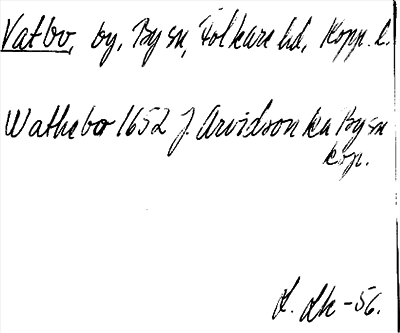 Vatbo, by, By sn, Folkare hd, Kopp. l.
Wathebo 1652 J. Arvidson ka By sn
kop.
-56.